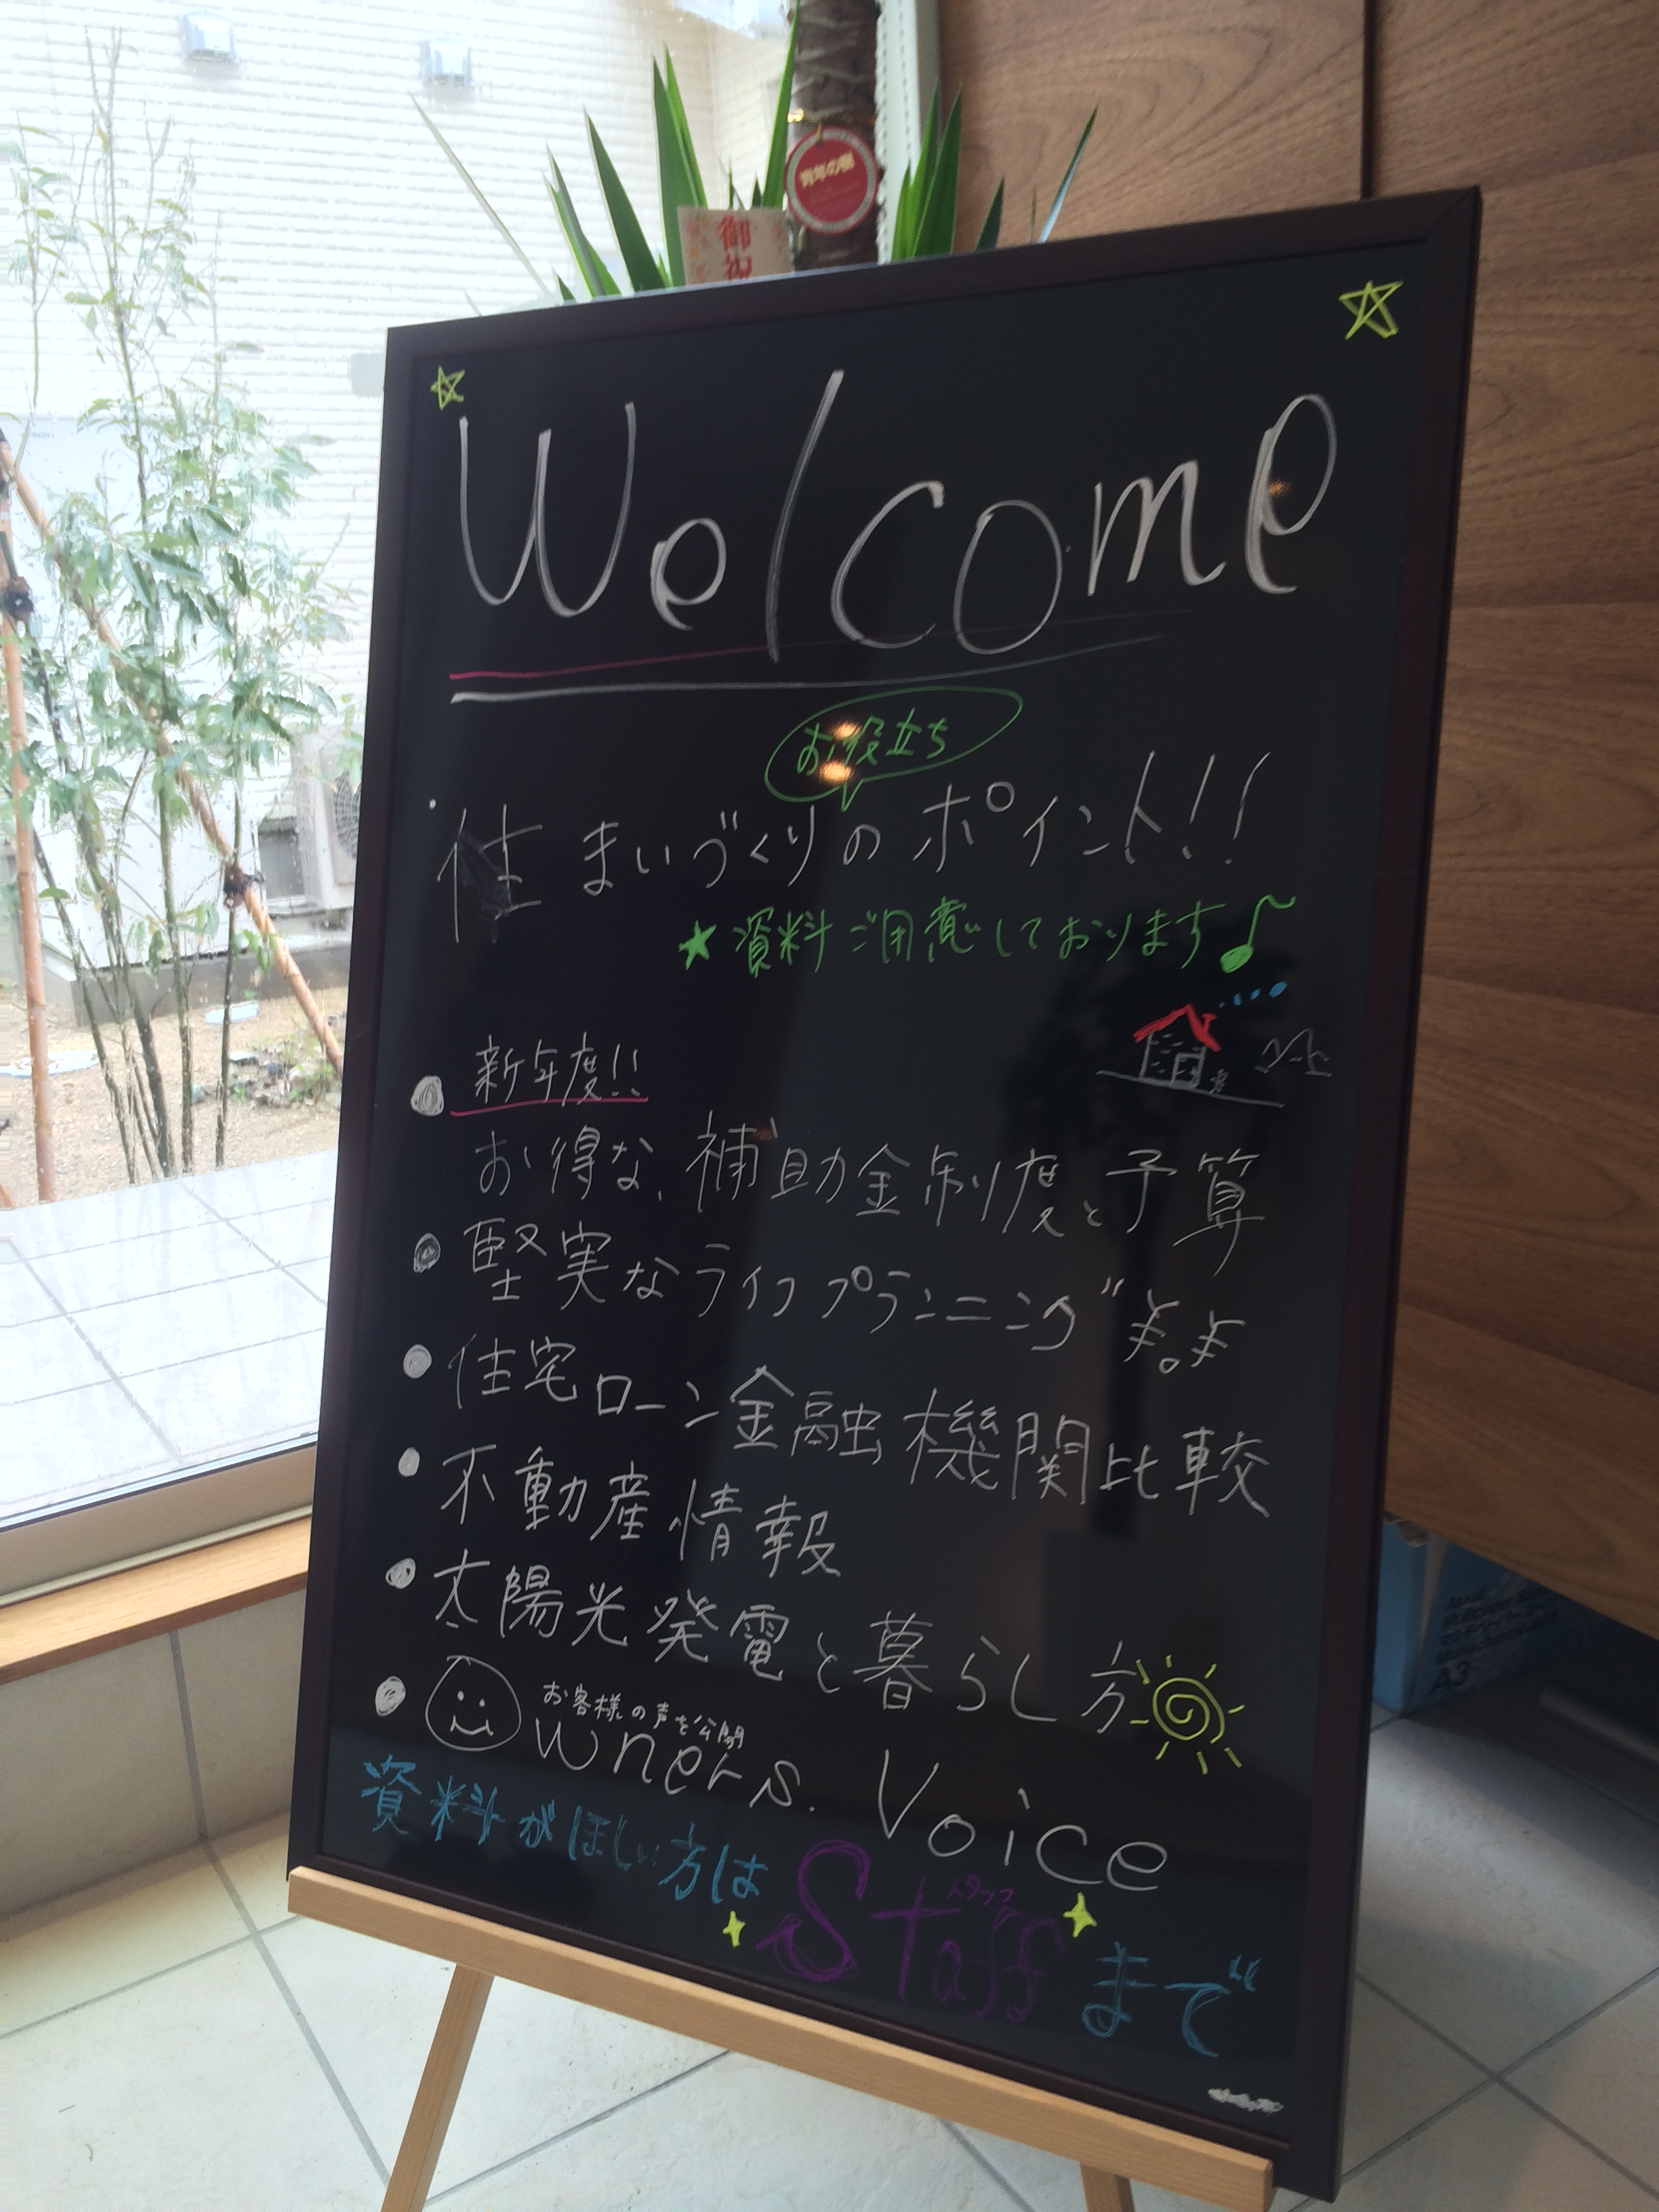 青年の樹
御祝
Welcome
お役立ち
住まいづくりのポイント!!
★資料ご用意しております♪
● 新年度!!
お得な、補助金制度と予算
● 堅実なライフプランニング
● 住宅ローン金融機関比較
● 不動産情報
● 太陽光発電と暮らし方
お客様の声を公開
● Owners. Voice
資料がほしい方は
スタッフ
Staffまで
A3